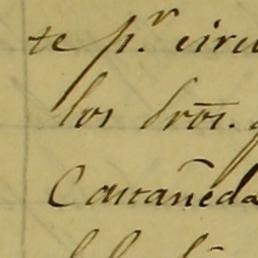 te p.r circu
los dros. q
Castañeda